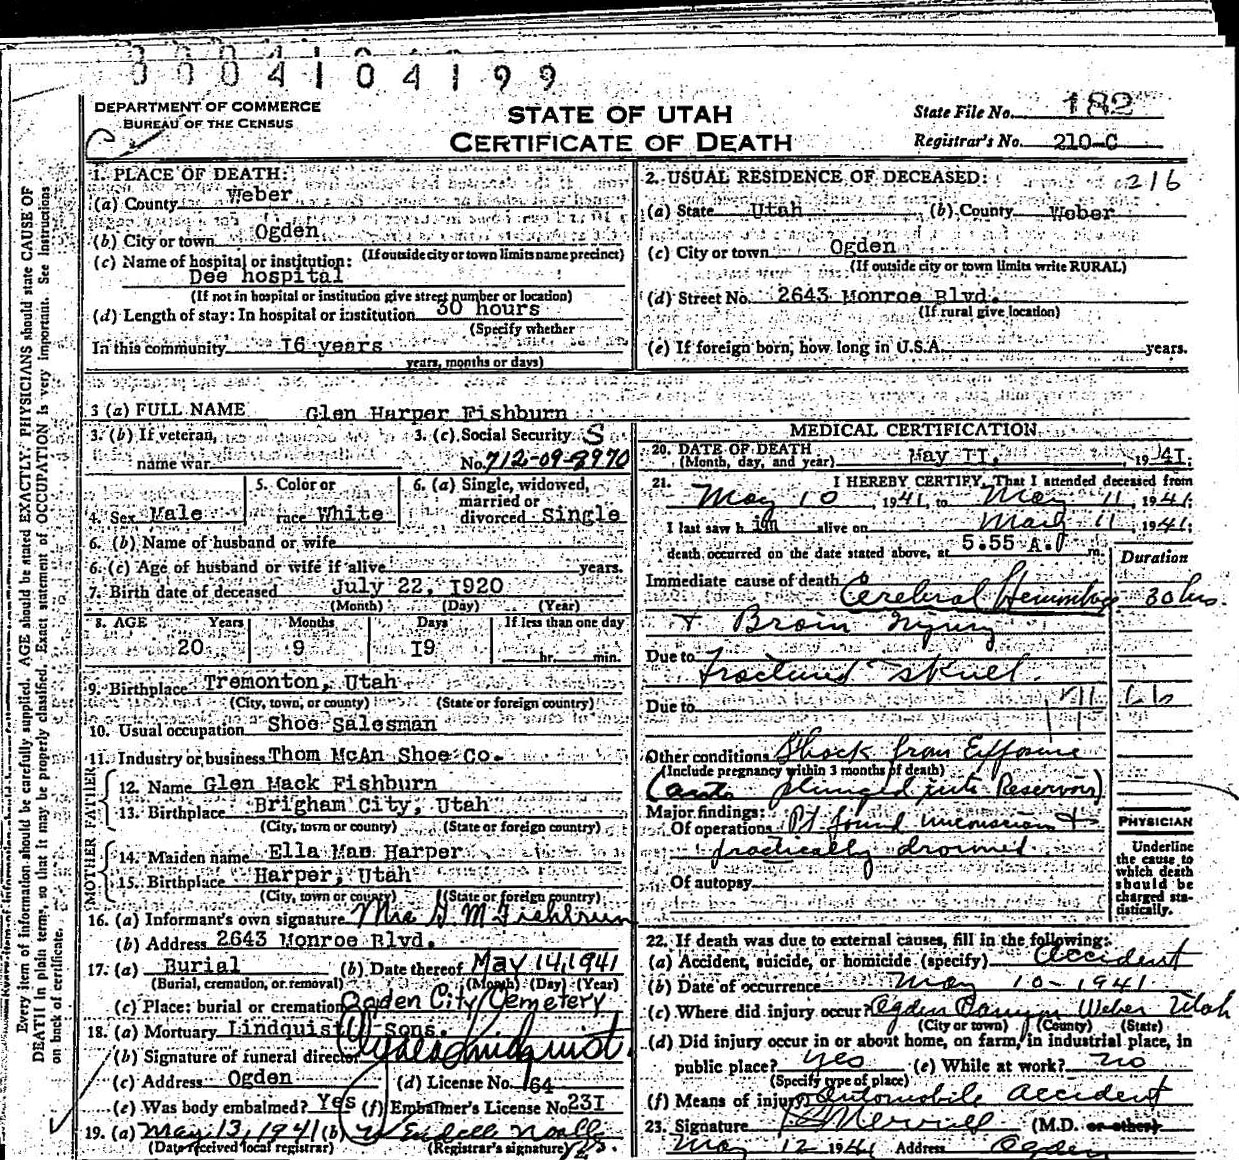 0004104199
DEPARTMENT OF COMMERCE
BUREAU OF THE CENSUS
STATE OF UTAH
CERTIFICATE OF DEATH
State File No. 182
Registrar's No. 210-C
Every item of information should be carefully supplied. AGE should be stated EXACTLY. PHYSICIANS should state CAUSE OF
DEATH in plain terms, so that it may be properly classified. Exact statement of OCCUPATION is very important. See instructions
on back of certificate.
1. PLACE OF DEATH:
(a) County Weber
(b) City or town Ogden
(If outside city or town limits name precinct)
(c) Name of hospital or institution:
Dee hospital
(If not in hospital or institution give street number or location)
(d) Length of stay: In hospital or institution 30 hours
(Specify whether
In this community 16 years
years, months or days)
2. USUAL RESIDENCE OF DECEASED: 216
(a) State Utah (b) County Weber
(c) City or town Ogden
(If outside city or town limits write RURAL)
(d) Street No. 2643 Monroe Blvd.
(If rural give location)
(e) If foreign born, how long in U.S.A. years.
3 (a) FULL NAME Glen Harper Fishburn
3. (b) If veteran,
name war
3. (c) Social Security S
No. 712-09-9970
4. Sex Male
5. Color or
race White
6. (a) Single, widowed,
married or
divorced Single
6. (b) Name of husband or wife
6. (c) Age of husband or wife if alive years.
7. Birth date of deceased July 22, 1920
(Month) (Day) (Year)
8. AGE Years Months Days If less than one day
20 9 19 hr. min.
9. Birthplace Tremonton, Utah
(City, town, or county) (State or foreign country)
10. Usual occupation Shoe Salesman
11. Industry or business Thom McAn Shoe Co.
FATHER
12. Name Glen Mack Fishburn
13. Birthplace Brigham City, Utah
(City, town or county) (State or foreign country)
MOTHER
14. Maiden name Ella Mae Harper
15. Birthplace Harper, Utah
(City, town or county) (State or foreign country)
16. (a) Informant's own signature Mrs G M Fishburn
(b) Address 2643 Monroe Blvd.
17. (a) Burial (b) Date thereof May 14, 1941
(Burial, cremation, or removal) (Month) (Day) (Year)
(c) Place: burial or cremation Ogden City Cemetery
18. (a) Mortuary Lindquist & Sons.
(b) Signature of funeral director Lindquist
(c) Address Ogden (d) License No. 64
(e) Was body embalmed? Yes (f) Embalmer's License No. 231
19. (a) May 13, 1941 (b)
(Date received local registrar) (Registrar's signature)
MEDICAL CERTIFICATION
20. DATE OF DEATH
(Month, day, and year) May 11, 1941.
21. I HEREBY CERTIFY, That I attended deceased from
May 10, 1941, to May 11, 1941.
I last saw him alive on May 11, 1941;
death occurred on the date stated above, at 5.55 A. m.
Duration
Immediate cause of death Cerebral Hemmorhage 30 hrs.
+ Brain Injury
Due to Fractured Skull.
Due to
Other conditions Shock from Exposure
(Include pregnancy within 3 months of death)
(auto plunged into Reservoir)
Major findings:
Of operations Pt found unconscious +
practically drowned.
Of autopsy
PHYSICIAN
Underline
the cause to
which death
should be
charged sta-
tistically.
22. If death was due to external causes, fill in the following:
(a) Accident, suicide, or homicide (specify) Accident
(b) Date of occurrence May 10-1941
(c) Where did injury occur? Ogden Canyon Weber Utah
(City or town) (County) (State)
(d) Did injury occur in or about home, on farm, in industrial place, in
public place? yes (e) While at work? no
(Specify type of place)
(f) Means of injury Automobile accident
23. Signature Merrill (M.D. or other)
May 12 1941 Address Ogden